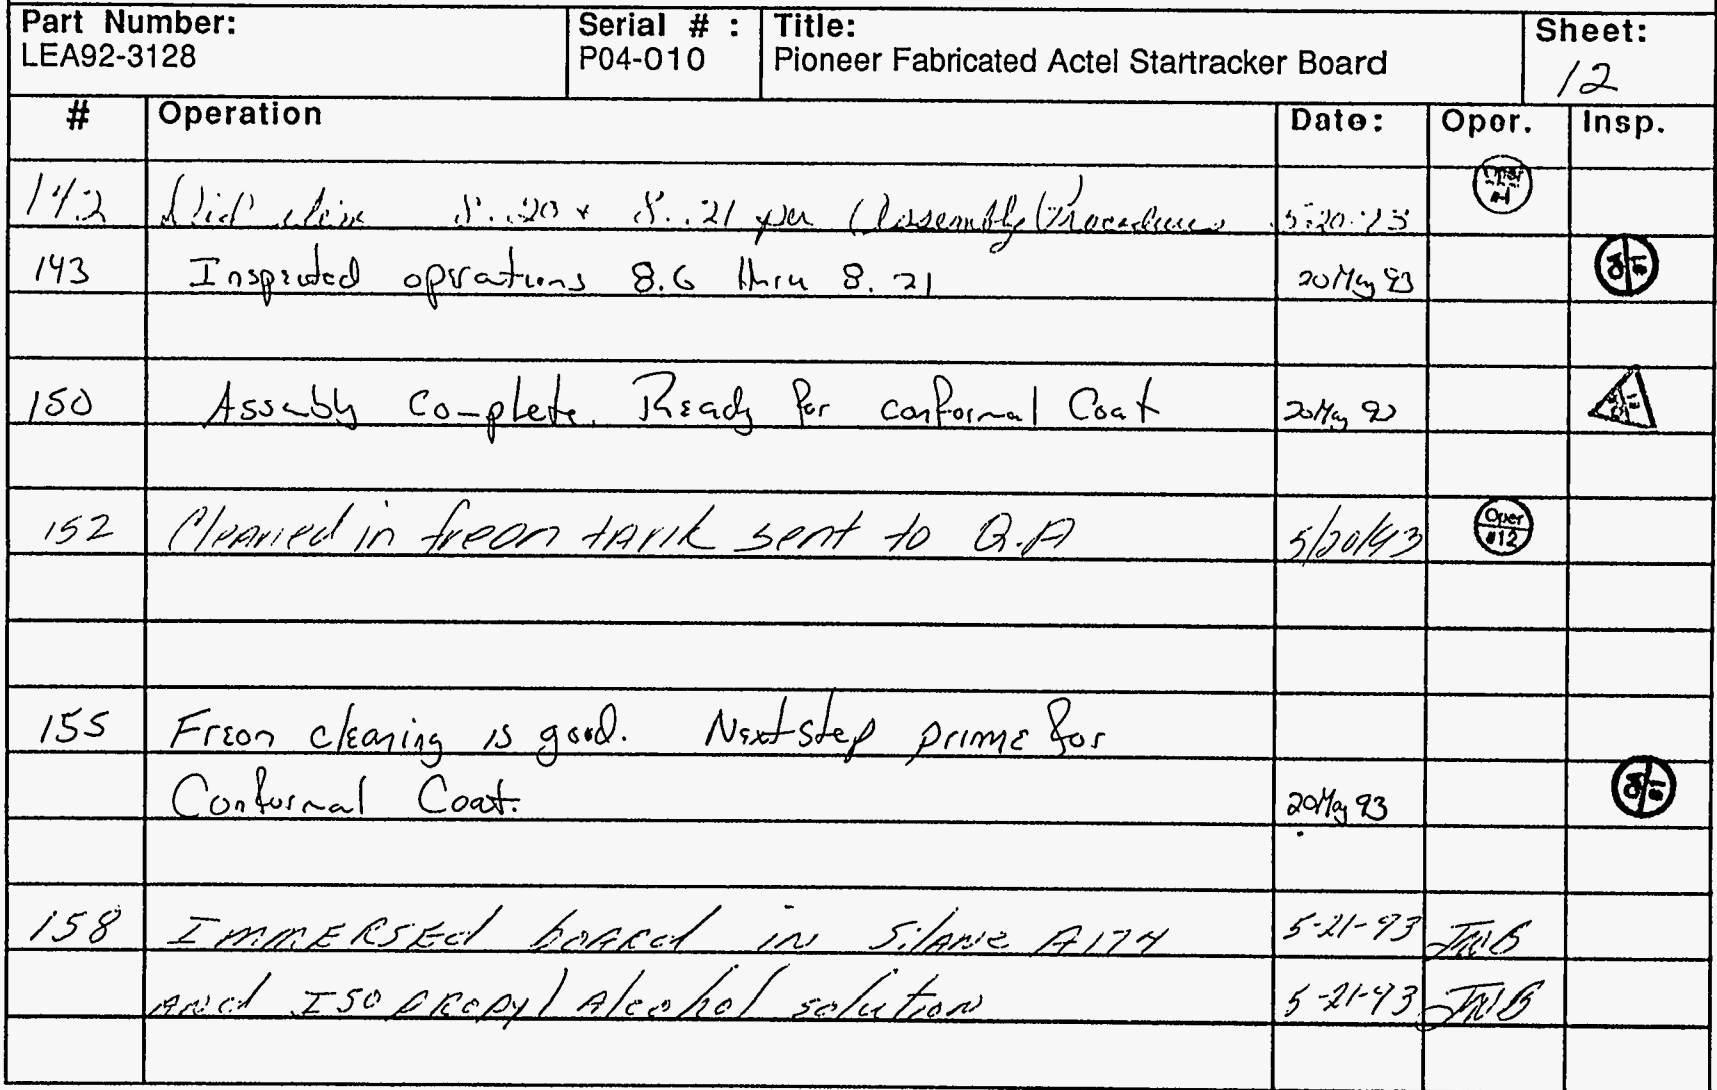 Part Number: Serial # : Title: Sheet:
LEA92-3128 P04-010 Pioneer Fabricated Actel Startracker Board 12
# Operation Date: Oper. Insp.
142 Did 8.20 + 8.21 per Assembly Procedure 5-20-93
143 Inspected operations 8.6 thru 8.21 20 May 93
150 Assembly Complete. Ready for conformal Coat 20 May 93
152 Cleaned in freon tank sent to Q.A 5/20/93 Oper #12
155 Freon cleaning is good. Next step prime for
Conformal Coat. 20 May 93
158 IMMERSEd boARd in SilANe A174 5-21-93 JWB
ANd ISOPROPYl Alcohol solution 5-21-93 JWB